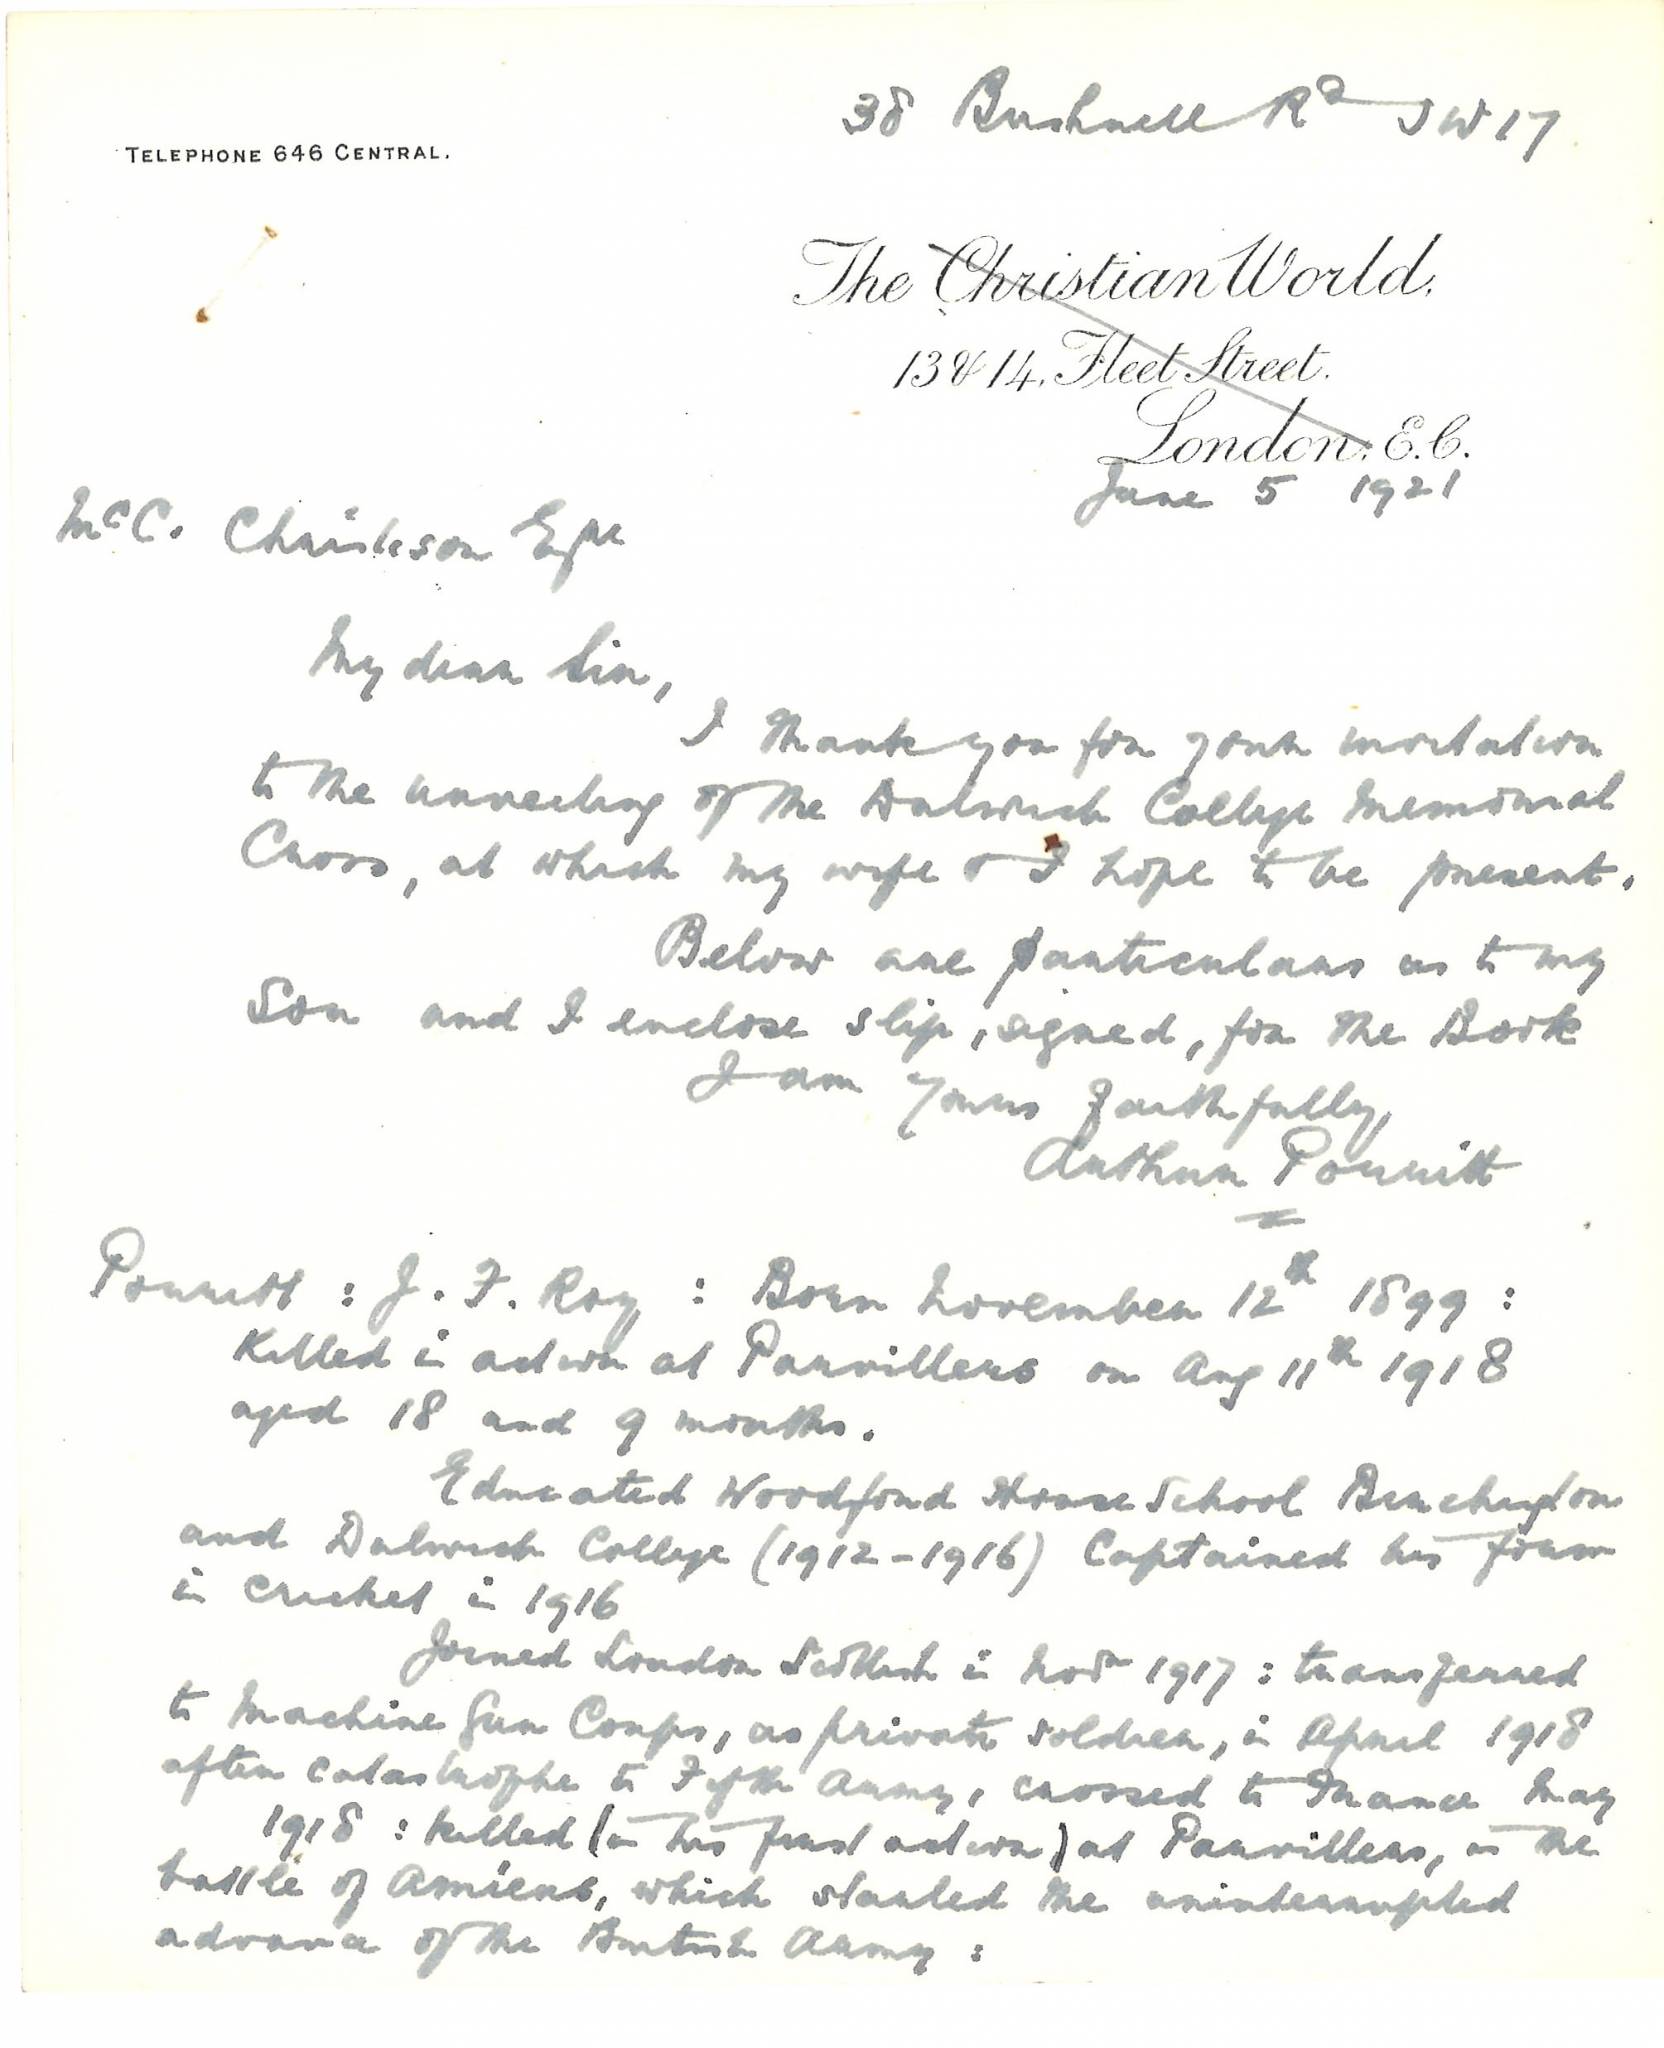 38 Bushnell Rd SW 17
TELEPHONE 646 CENTRAL.
The Christian World.
13 & 14, Fleet Street.
London. E.C.
June 5 1921
McC. Christeson Esqre
My dear Sir,
I thank you for your invitation
to the unveiling of the Dulwich College Memorial
Cross, at which my wife & I hope to be present.
Below are particulars as to my
Son and I enclose slip, signed, for the Book
I am Yours faithfully,
Arthur Porritt
Porritt : J. F. Roy : Born November 12th 1899 :
Killed in action at Parvillers on Aug 11th 1918
aged 18 and 9 months.
Educated Woodford House School Birchington
and Dulwich College (1912-1916) Captained his form
in cricket in 1916
Joined London Scottish in Novr 1917 : transferred
to Machine Gun Corps, as private soldier, in April 1918
after catastrophe to Fifth Army, crossed to France May
1918 : killed (in his first action) at Parvillers, in the
battle of Amiens, which started the uninterrupted
advance of the British Army :